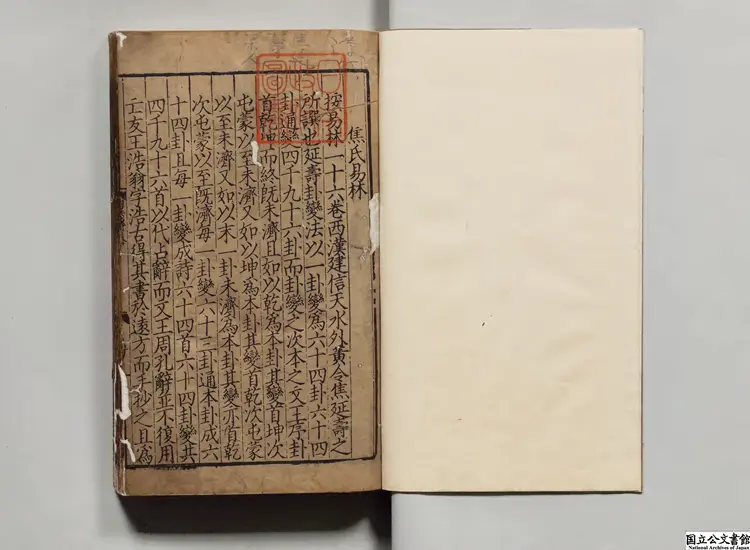 焦氏易林
按易林一十六卷西漢建信天水外黃令焦延壽之
所譔也延壽卦變法以一卦變為六十四卦六十四
卦通變四千九十六卦而卦變之次本之文王序卦
首乾坤而終既未濟且如以乾為本卦其變首坤次
屯蒙以至未濟又如以坤為本卦其變首乾次屯蒙
以至未濟又如以末一卦未濟為本卦其變亦首乾
次屯蒙以至既濟每一卦變六十三卦通本卦成六
十四卦且每一卦變成詩六十四首六十四卦變其
四千九十六首以代占辭而文王周孔辭並不復用
壬友王浩翁字浩古得其書於遠方而手抄之且為
国立公文書館
National Archives of Japan